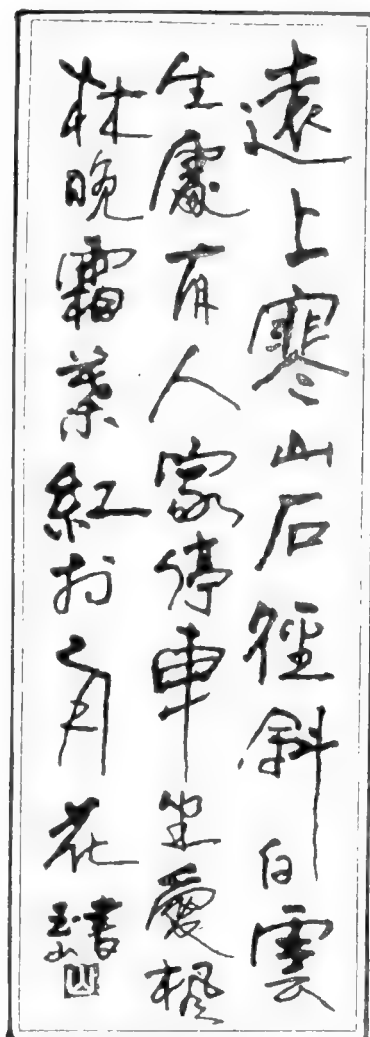 遠上寒山石徑斜白雲
生處有人家停車坐愛楓
林晚霜葉紅於二月花
玉山書
山